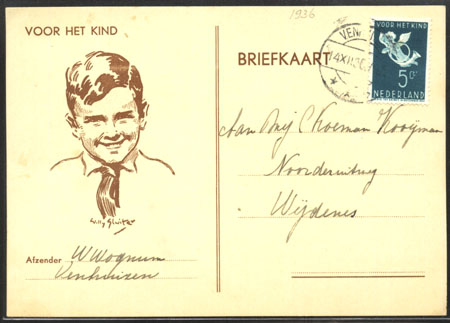 1936
VOOR HET KIND
BRIEFKAART
VEN
VOOR HET KIND
5 ct
NEDERLAND
Aan Mej C Koeman Kooijman
Noorderuitweg
Wijdenes
Willy Sluiter
Afzender W Wognum
Venhuizen